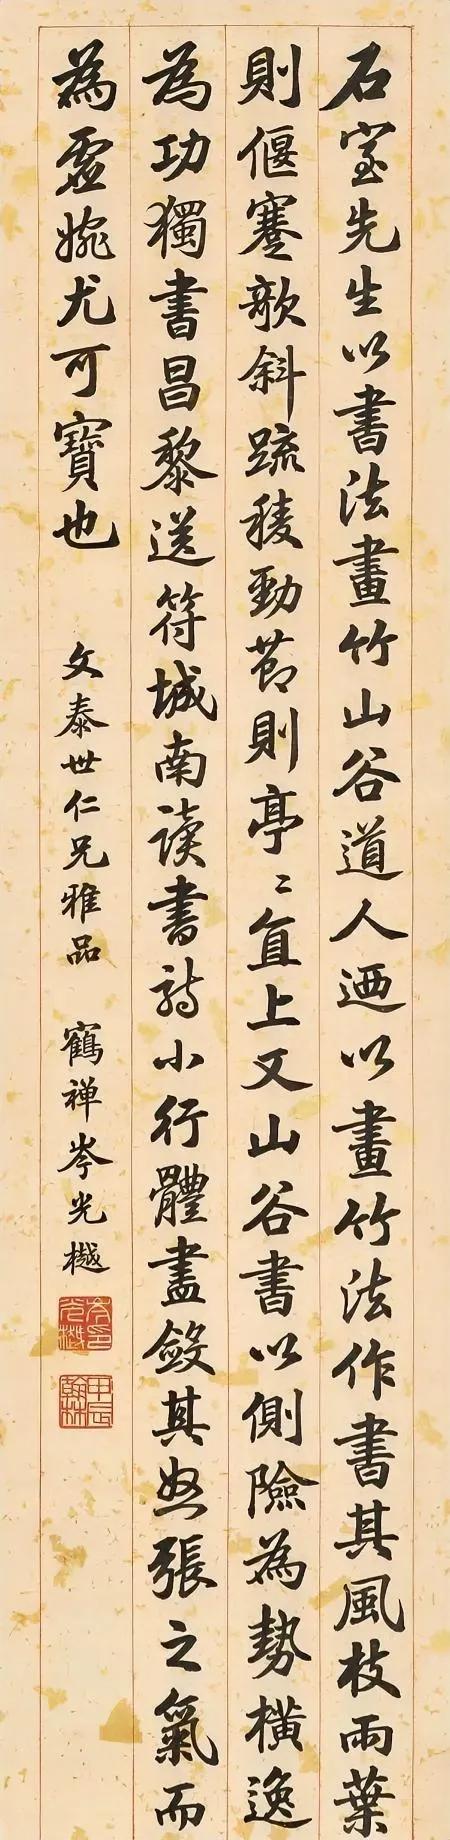 石室先生以書法畫竹山谷道人迺以畫竹法作書其風枝雨葉
則偃蹇欹斜疏稜勁節則亭〻直上又山谷書以側險為勢橫逸
為功獨書昌黎送符城南讀書詩小行體盡斂其怒張之氣而
為虛婉尤可寶也
文泰世仁兄雅品 鶴禪岑光樾
岑光樾印
甲辰翰林